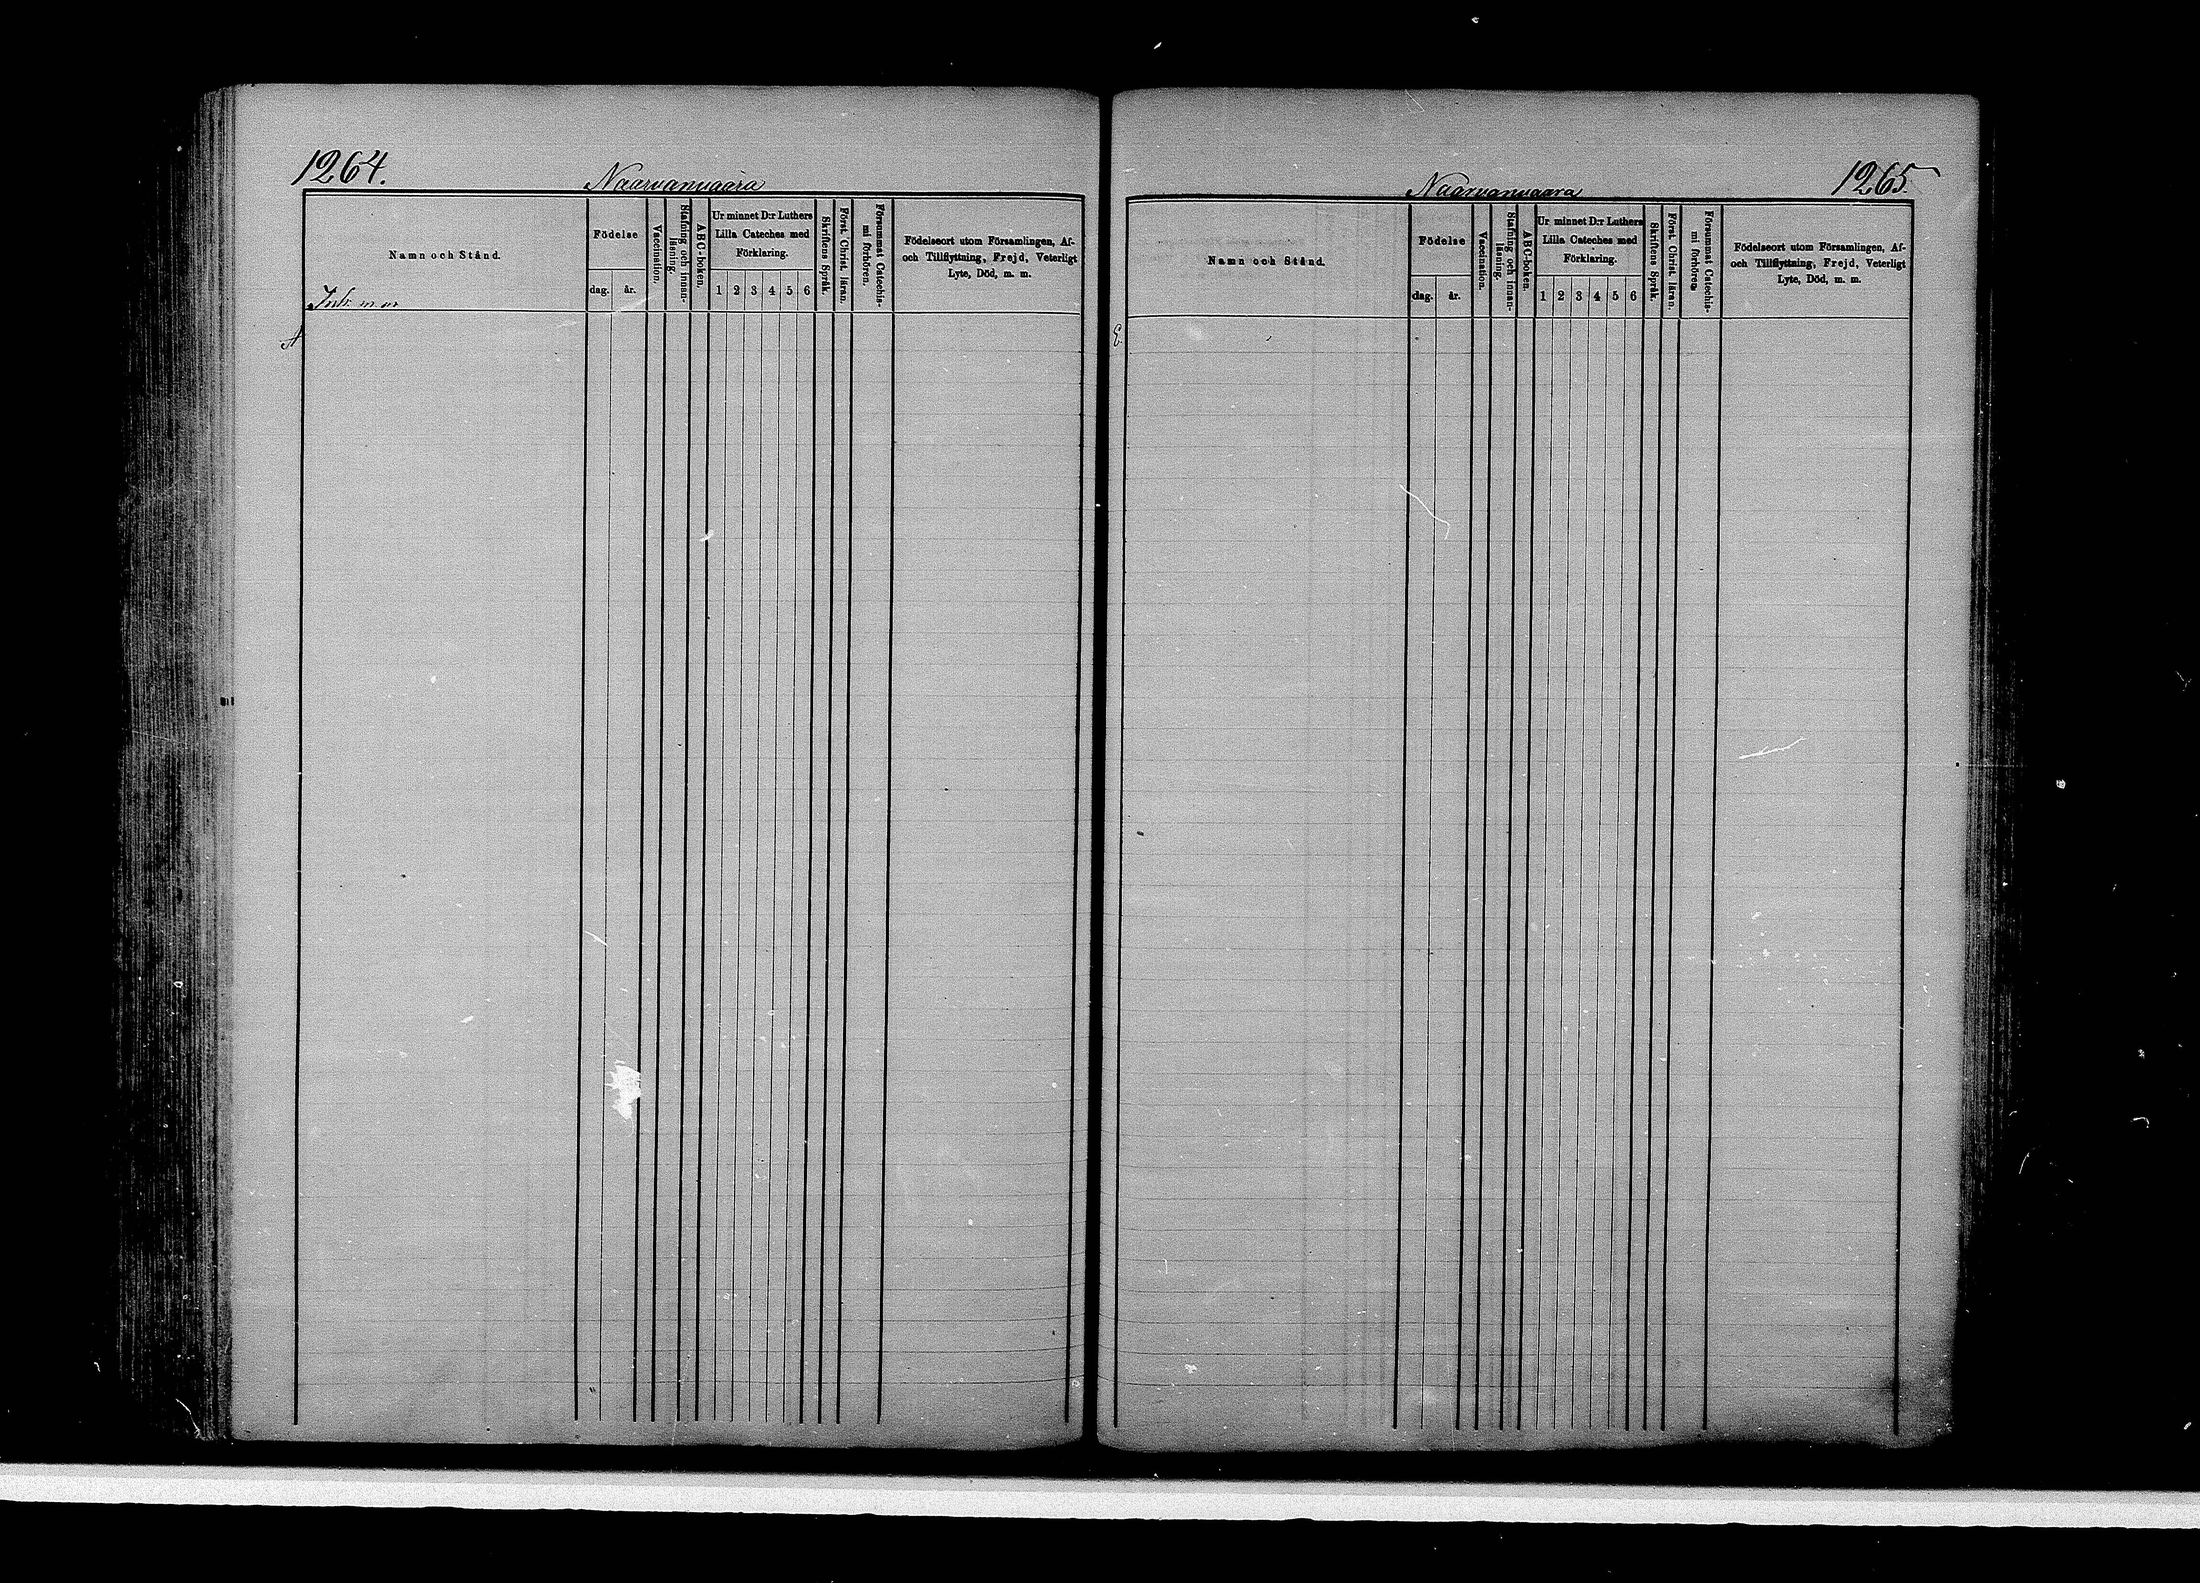 1264.
Naarvanvaara
Namn och Stånd.
Födelse
dag.
år.
Vaccination.
Stafning och innan-
läsning.
ABC-boken.
Ur minnet D:r Luthers
Lilla Cateches med
Förklaring.
1 2 3 4 5 6
Skriftens Språk.
Först. Christ. läran.
Försummat Catechis-
mi förhören.
Födelseort utom Församlingen, Af-
och Tillflyttning, Frejd, Veterligt
Lyte, Död, m. m.
A
Naarvanvaara
1265.
Namn och Stånd.
Födelse
dag.
år.
Vaccination.
Stafning och innan-
läsning.
ABC-boken.
Ur minnet D:r Luthers
Lilla Cateches med
Förklaring.
1 2 3 4 5 6
Skriftens Språk.
Först. Christ. läran.
Försummat Catechis-
mi förhören.
Födelseort utom Församlingen, Af-
och Tillflyttning, Frejd, Veterligt
Lyte, Död, m. m.
E.